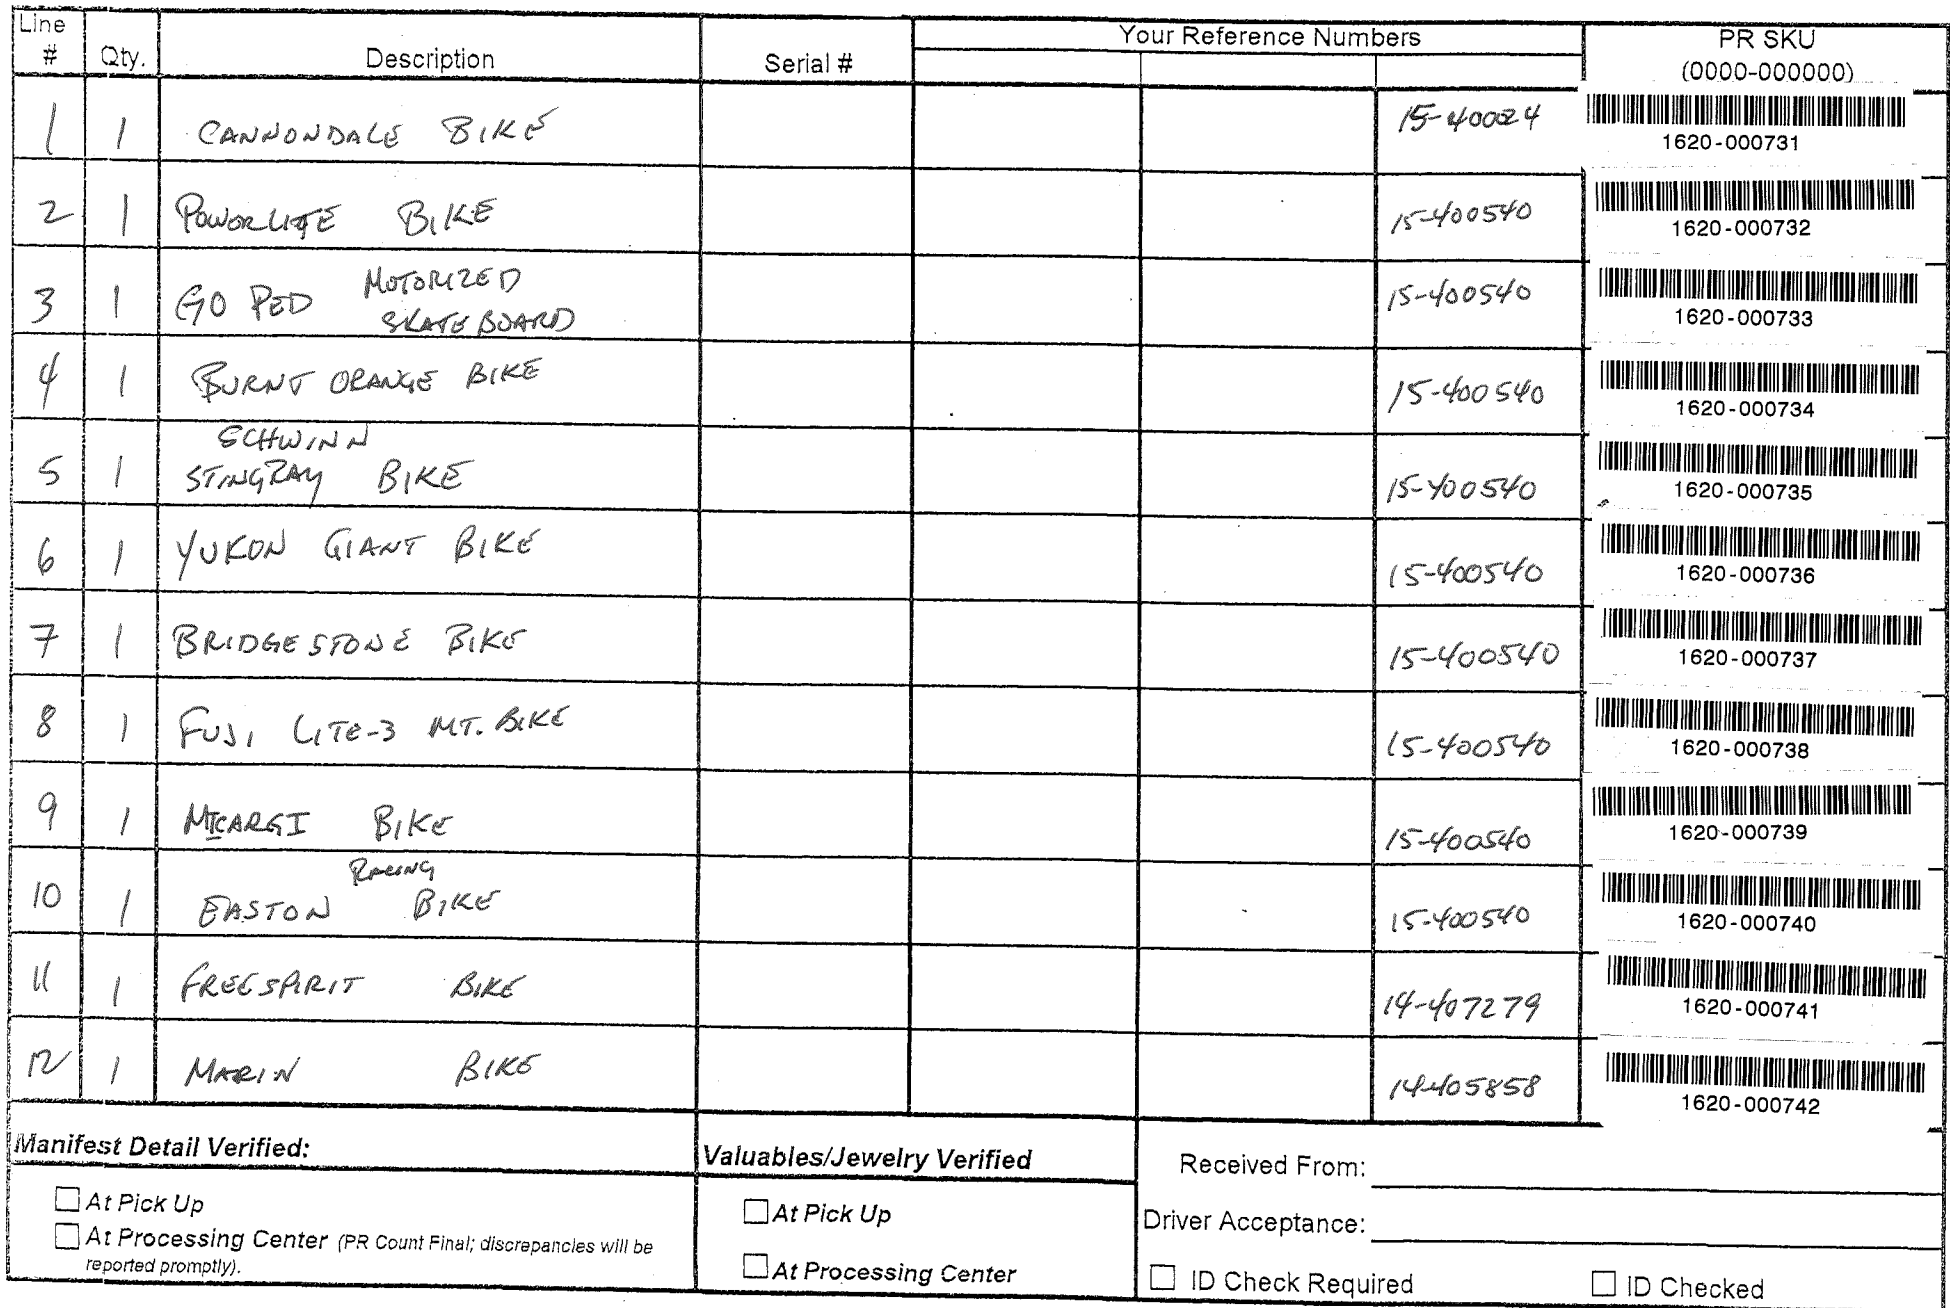 Line # Qty. Description Serial # Your Reference Numbers PR SKU (0000-000000)
1 1 CANNONDALE BIKE 15-40024 1620-000731
2 1 POWORLITE BIKE 15-400540 1620-000732
3 1 GO PED MOTORIZED SKATEBOARD 15-400540 1620-000733
4 1 BURNT ORANGE BIKE 15-400540 1620-000734
5 1 SCHWINN STINGRAY BIKE 15-400540 1620-000735
6 1 YUKON GIANT BIKE 15-400540 1620-000736
7 1 BRIDGESTONE BIKE 15-400540 1620-000737
8 1 FUJI LITE-3 MT. BIKE 15-400540 1620-000738
9 1 MICARGI BIKE 15-400540 1620-000739
10 1 EASTON RACING BIKE 15-400540 1620-000740
11 1 FREESPIRIT BIKE 14-407279 1620-000741
12 1 MARIN BIKE 14-405858 1620-000742
Manifest Detail Verified:
At Pick Up
At Processing Center (PR Count Final; discrepancies will be
reported promptly).
Valuables/Jewelry Verified
At Pick Up
At Processing Center
Received From:
Driver Acceptance:
ID Check Required ID Checked